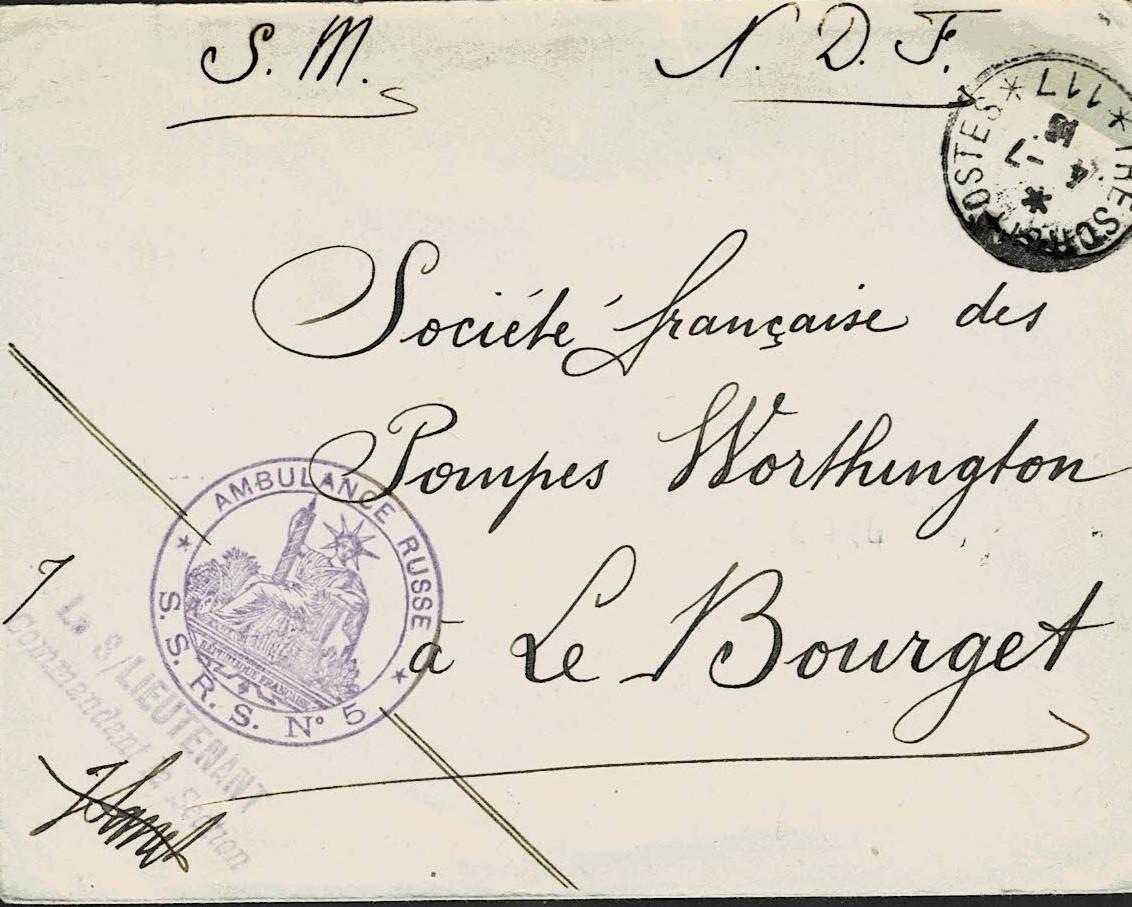 S. M. N. D. F.
TRESOR ET POSTES
* 117 *
4 - 7
Société française des
Pompes Worthington
à Le Bourget
AMBULANCE RUSSE
RÉPUBLIQUE FRANÇAISE
S. S. R. S. N° 5
Le S/LIEUTENANT
Commandant la Section